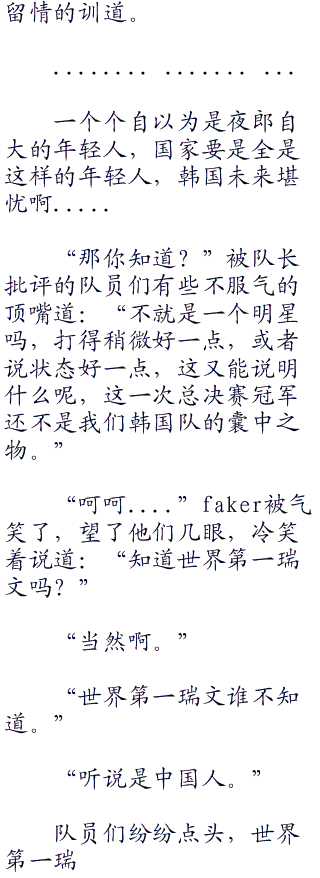 留情的训道。
........ ....... ...
一个个自以为是夜郎自
大的年轻人，国家要是全是
这样的年轻人，韩国未来堪
忧啊.....
“那你知道？”被队长
批评的队员们有些不服气的
顶嘴道：“不就是一个明星
吗，打得稍微好一点，或者
说状态好一点，这又能说明
什么呢，这一次总决赛冠军
还不是我们韩国队的囊中之
物。”
“呵呵....”faker被气
笑了，望了他们几眼，冷笑
着说道：“知道世界第一瑞
文吗？”
“当然啊。”
“世界第一瑞文谁不知
道。”
“听说是中国人。”
队员们纷纷点头，世界
第一瑞